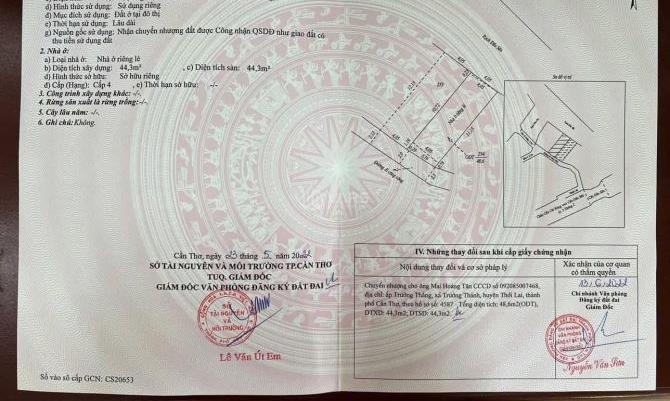 d) Hình thức sử dụng: Sử dụng riêng
đ) Mục đích sử dụng: Đất ở tại đô thị
e) Thời hạn sử dụng: Lâu dài
g) Nguồn gốc sử dụng: Nhận chuyển nhượng đất được Công nhận QSDĐ như giao đất có
thu tiền sử dụng đất
2. Nhà ở:
a) Loại nhà ở: Nhà ở riêng lẻ
b) Diện tích xây dựng: 44,3m² , c) Diện tích sàn: 44,3m²
d) Hình thức sở hữu: Sở hữu riêng
đ) Cấp (Hạng): Cấp 4 , e) Thời hạn sở hữu: -/-
3. Công trình xây dựng khác: -/-
4. Rừng sản xuất là rừng trồng: -/-
5. Cây lâu năm: -/-
6. Ghi chú: Không.
Cần Thơ, ngày 03 tháng 5 năm 2022
SỞ TÀI NGUYÊN VÀ MÔI TRƯỜNG TP.CẦN THƠ
TUQ. GIÁM ĐỐC
GIÁM ĐỐC VĂN PHÒNG ĐĂNG KÝ ĐẤT ĐAI
SỞ
TÀI NGUYÊN
VÀ
MÔI TRƯỜNG
Lê Văn Út Em
Số vào sổ cấp GCN: CS20653
Sơ đồ vị trí
IV. Những thay đổi sau khi cấp giấy chứng nhận
Nội dung thay đổi và cơ sở pháp lý
Xác nhận của cơ quan
có thẩm quyền
Chuyển nhượng cho ông Mai Hoàng Tân CCCD số 092085007468,
địa chỉ: ấp Trường Thắng, xã Trường Thành, huyện Thới Lai, thành
phố Cần Thơ, theo hồ sơ số: 4587 - Tổng diện tích: 48,6m2(ODT),
DTXD: 44,3m2, DTSD: 44,3m2.
13/6/2022
Chi nhánh Văn phòng
Đăng ký đất đai
Giám Đốc
Nguyễn Văn Sơn